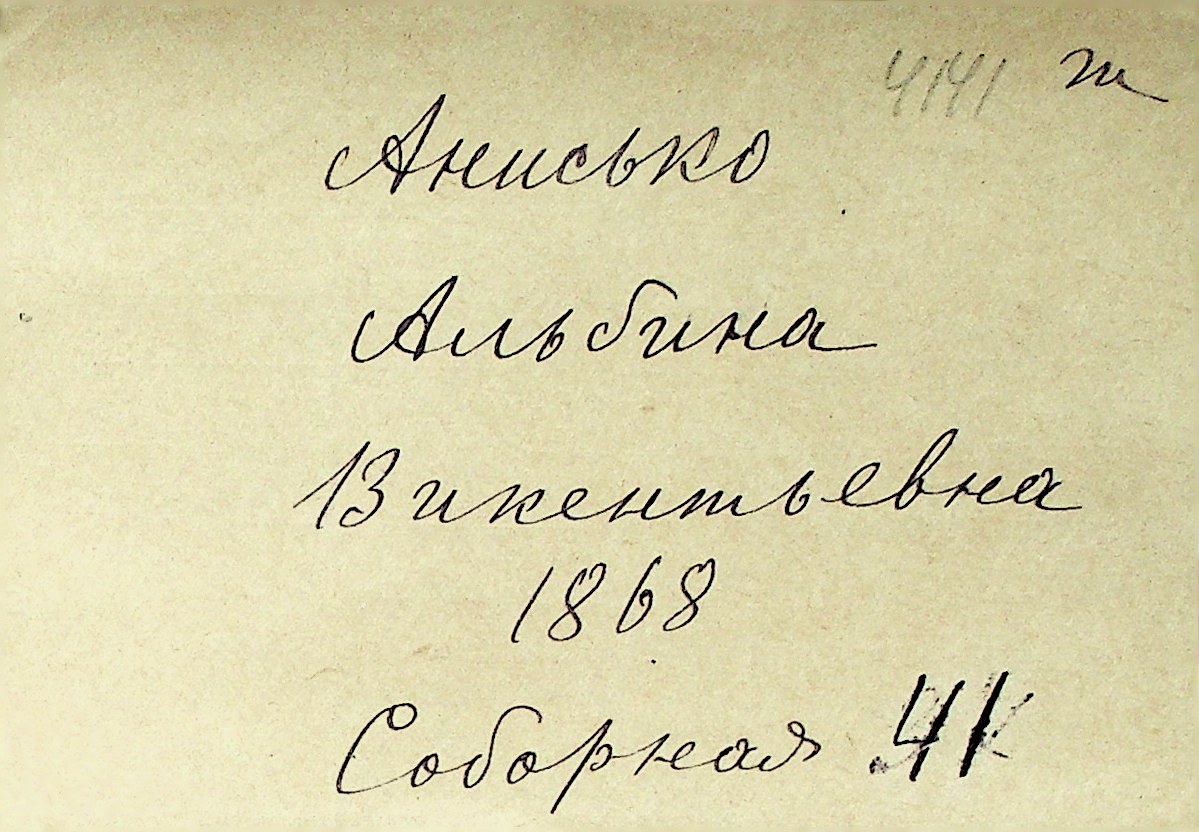 4141 т
Анисько
Альбина
Викентьевна
1868
Соборная 41